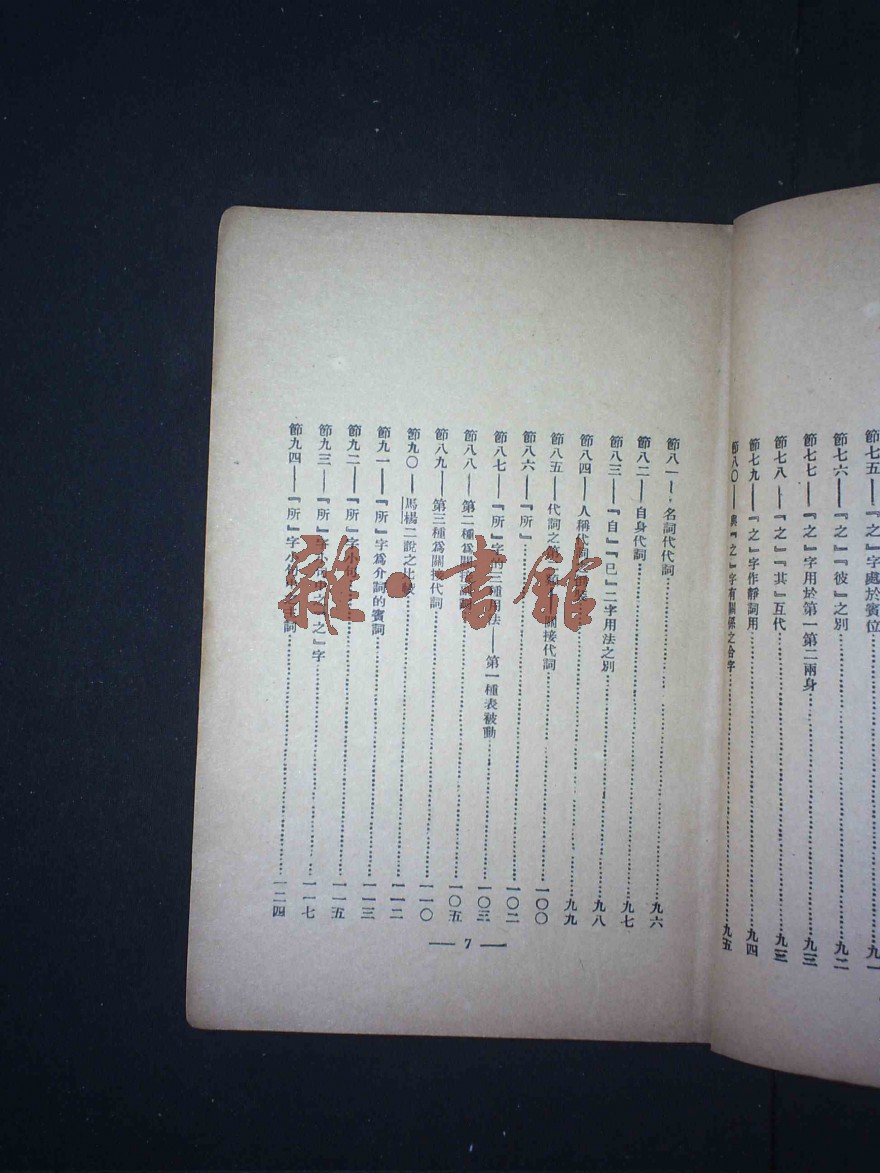 節七五——『之』字處於賓位……九一
節七六——『之』『彼』之別……九二
節七七——『之』字用於第一第二兩身……九三
節七八——『之』『其』互代……九三
節七九——『之』字作靜詞用……九四
節八〇——與『之』字有關係之合字……九五
節八一——名詞代代詞……九六
節八二——自身代詞……九七
節八三——『自』『己』二字用法之別……九八
節八四——人稱代詞之……九九
節八五——代詞之第……關接代詞……一〇〇
節八六——『所』……一〇二
節八七——『所』字的三種用法——第一種表被動……一〇三
節八八——第二種爲關接代詞……一〇五
節八九——第三種爲關接代詞……一一〇
節九〇——馬楊二說之比較……一一二
節九一——『所』字爲介詞的賓詞……一一三
節九二——『所』字小……一一五
節九三——『所』字小……『之』字……一一七
節九四——『所』字小……主詞……一二四
— 7 —
雜·書館